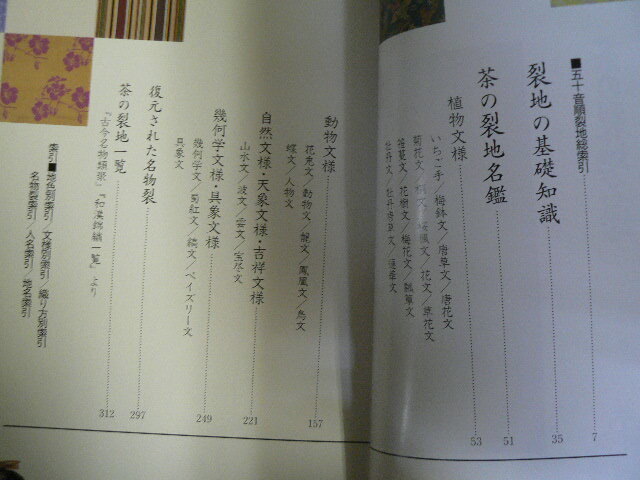 ■五十音順裂地総索引 7
裂地の基礎知識 35
茶の裂地名鑑 51
植物文様 53
いちご手/梅鉢文/唐草文/唐花文
菊花文/桐文/桜風文/花文/草花文
笹蔓文/花樹文/梅花文/瓢箪文
牡丹文/牡丹唐草文/蓮華文
動物文様 157
花兎文/動物文/龍文/鳳凰文/鳥文
蝶文/人物文
自然文様・天象文様・吉祥文様 221
山水文/波文/雲文/宝尽文
幾何学文様・具象文様 249
幾何学文/蜀紅文/縞文/ペイズリー文
具象文
復元された名物裂 297
茶の裂地一覧 312
『古今名物類聚』『和漢錦繍一覧』より
索引■地色別索引/文様別索引/織り方別索引
名物裂索引/人名索引/地名索引